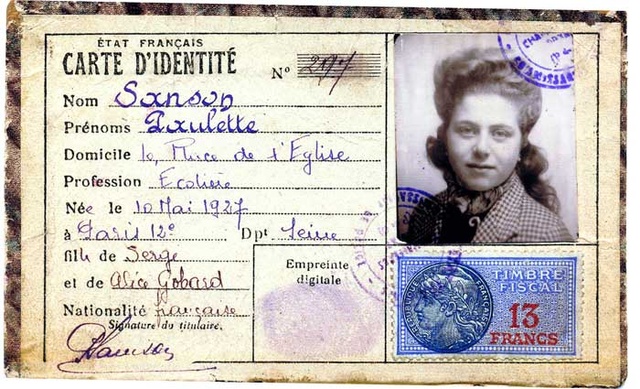 ÉTAT FRANÇAIS
CARTE D'IDENTITÉ
N° 297
Nom Sanson
Prénoms Paulette
Domicile 10, Place de l'Eglise
Profession Ecolière
Née le 10 Mai 1927
à Paris 12e Dpt Seine
fille de Serge
et de Alice Gobard
Nationalité française
Signature du titulaire.
Empreinte
digitale
TIMBRE
FISCAL
13
FRANCS